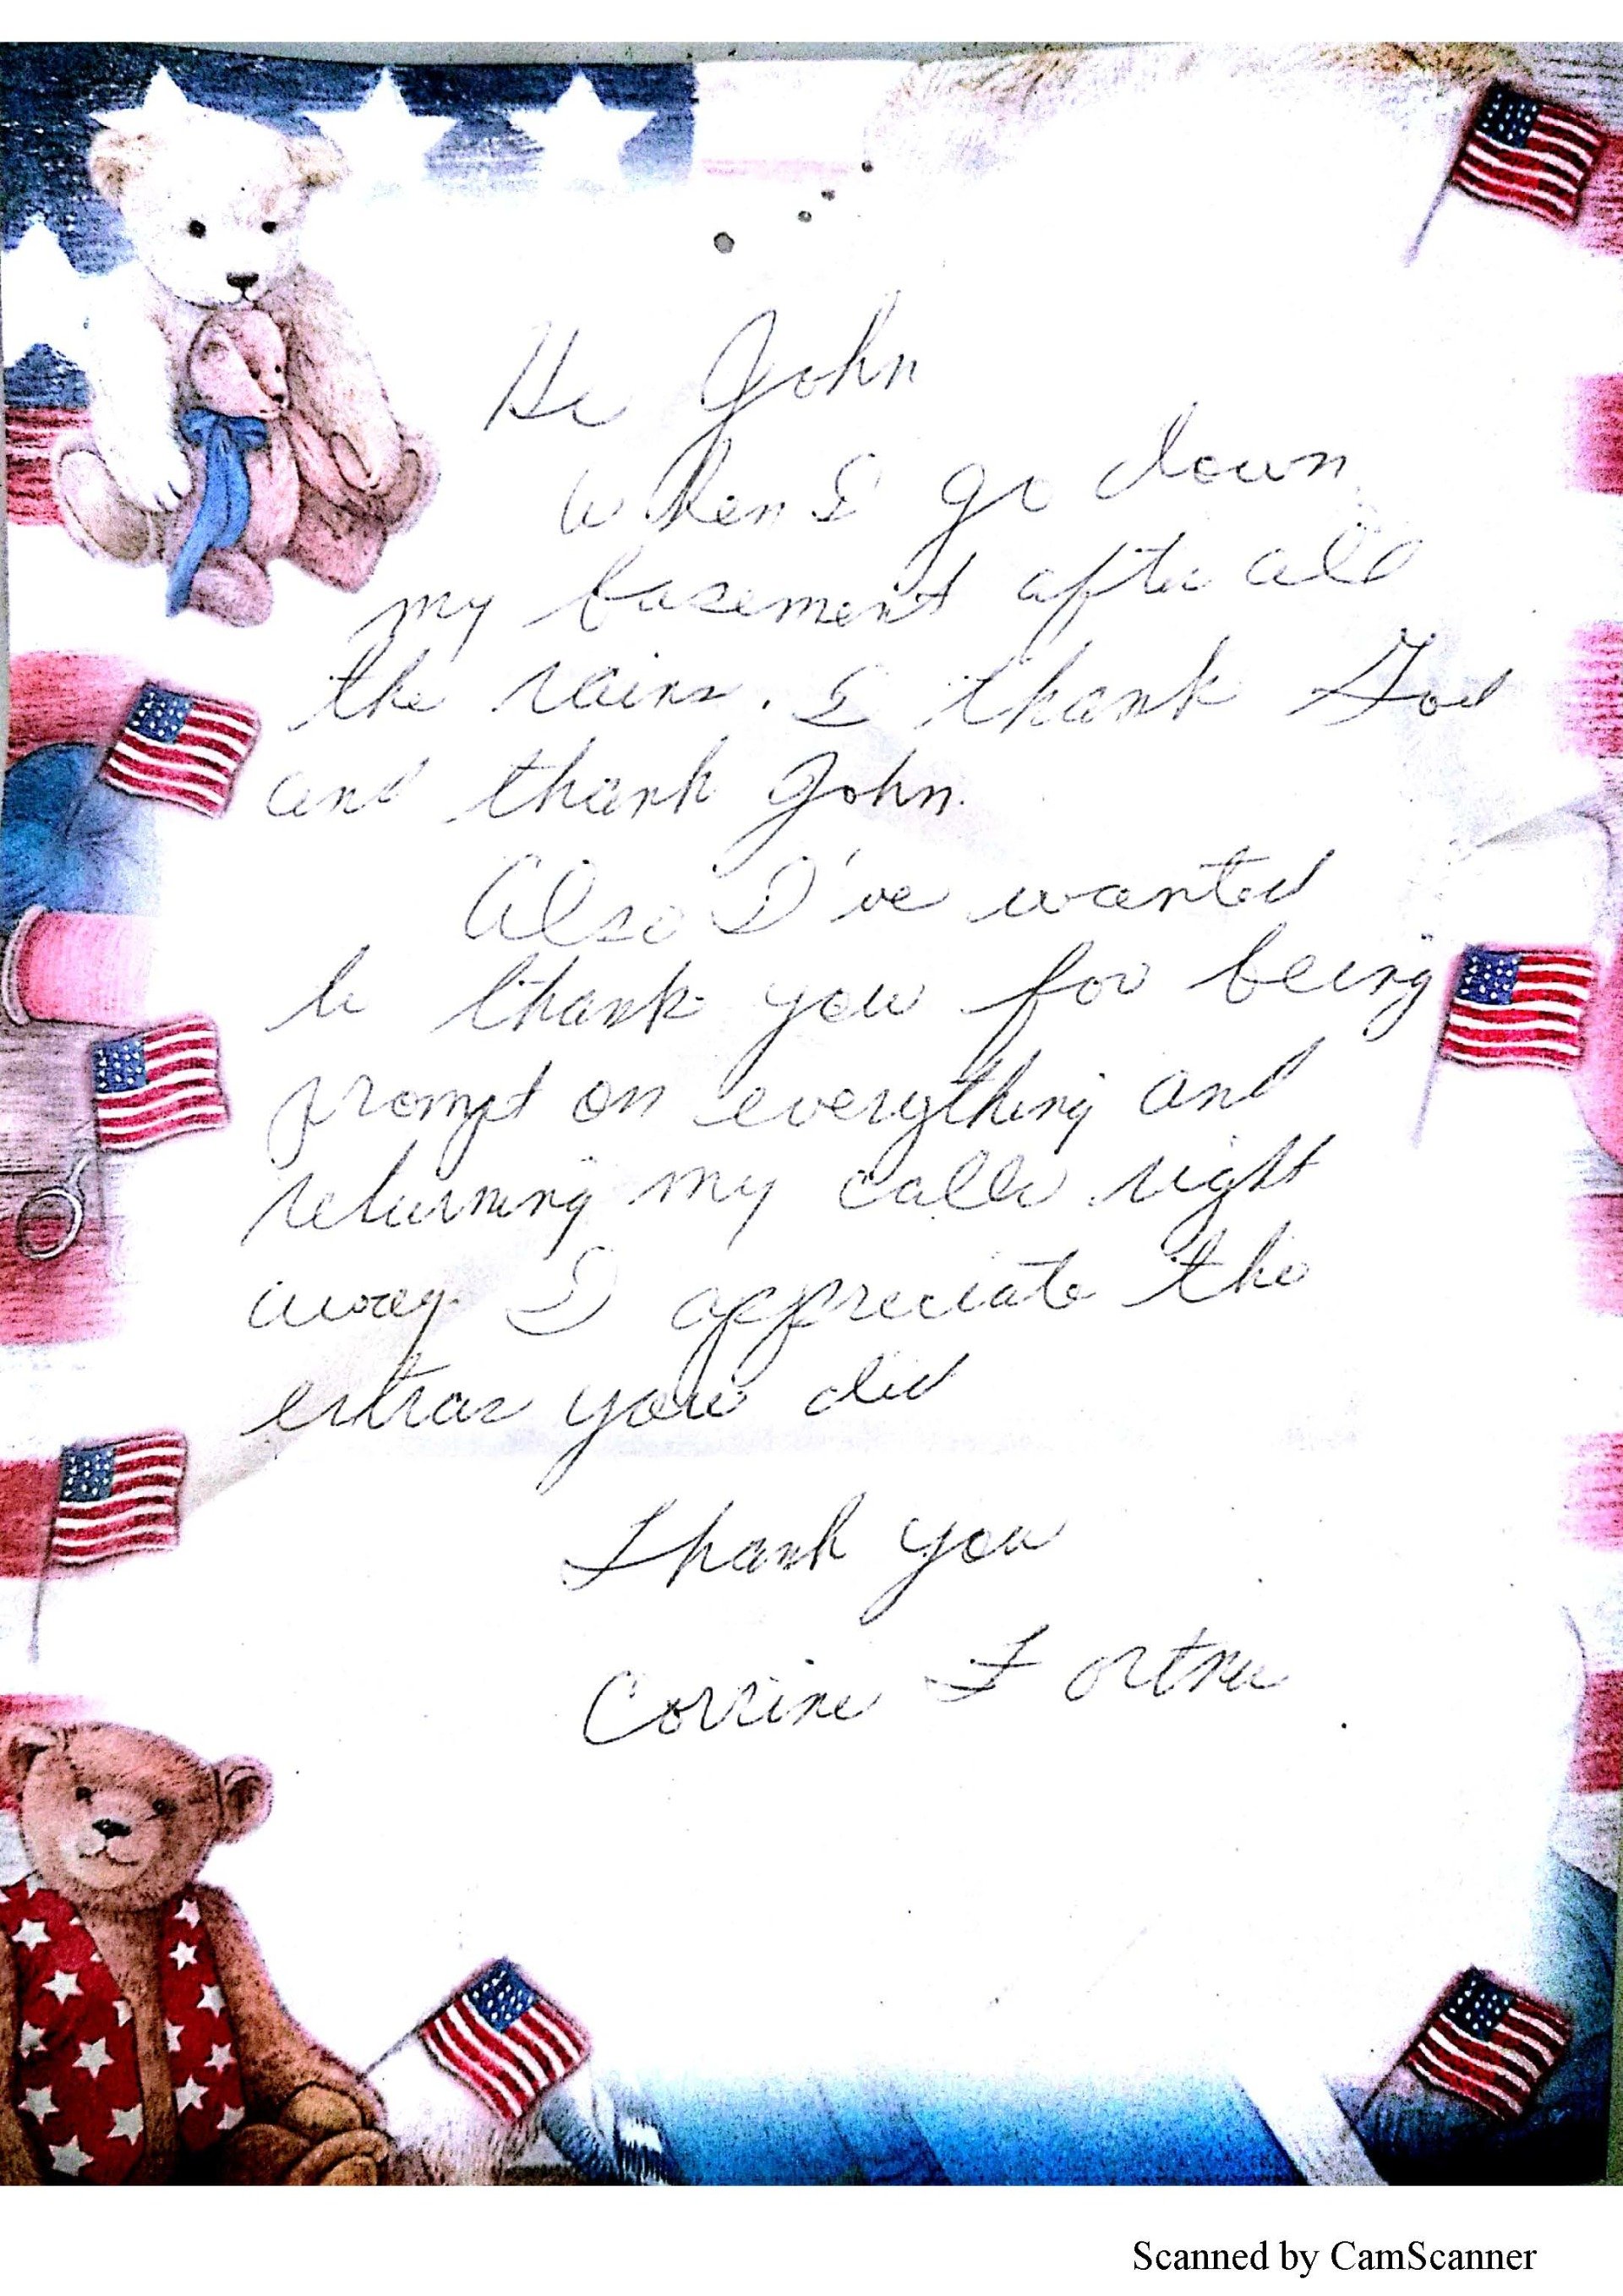 Hi John
When I go down
my basement after all
the rains. I thank God
and thank John.
Also I've wanted
to thank you for being
prompt on everything and
returning my calls right
away. I appreciate the
extras you did
Thank you
Corrine Fortner
Scanned by CamScanner